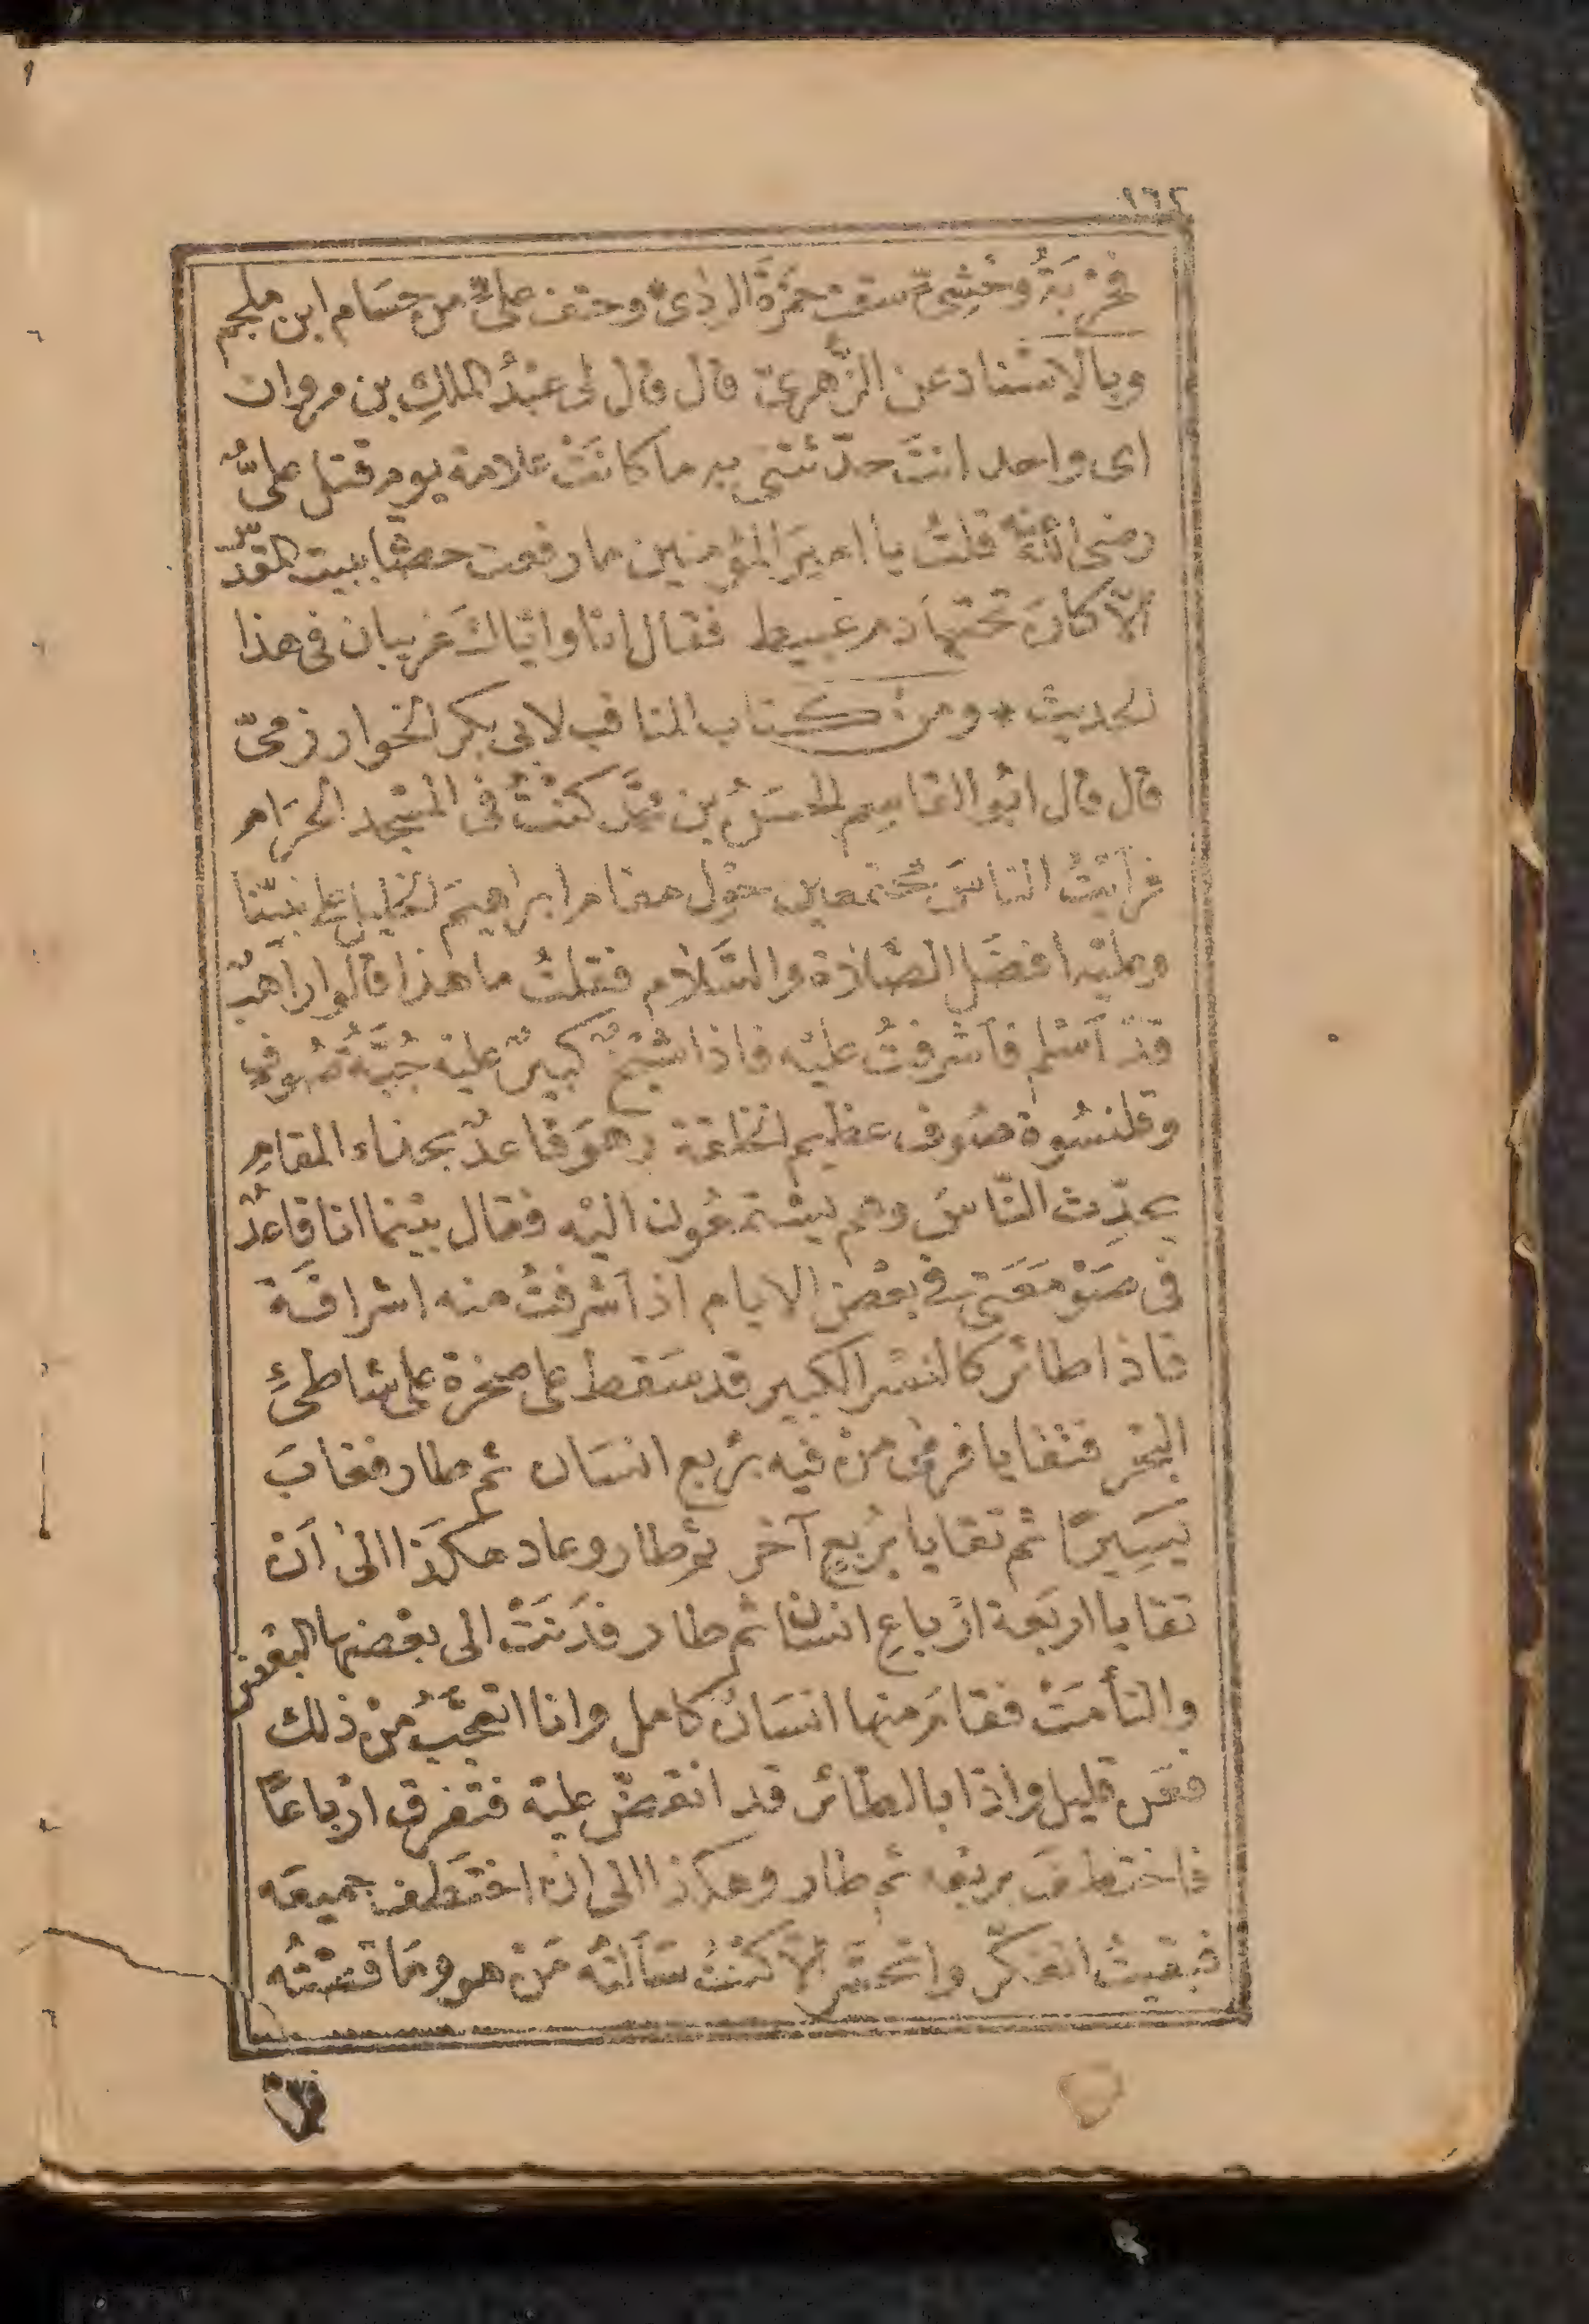 ١٦٢
فحَرْبَةُ وَحْشِيٍّ سقت حمزَةَ الردى * وحتف عليٍّ من حسَام ابن ملجم
وبالاسْناد عن الزُّهريّ قال قال لى عبْدُ الملكِ بن مروان
اى واحد انتَ حدّثتنى به ما كانَتْ علامة يوم قتل عليٌّ
رضى الله عنه قلتُ يا اميرَ المؤمنين ما رفعت حصَاة ببيت المقدّس
الاّ كانَ تحتها دم عبيط فقال انا واياكَ غريبان فى هذا
الحديث * ومن كتاب المناقب لابى بكر الخوارزمىّ
قال قال ابُو القاسِم الحسَنُ بن محمَّد كنْتُ فى المسْجد الحرَام
فرأيْتُ الناسَ مجْتمعين حوْل مقام ابراهيمَ الخليل على نبيّنا
وعليْه افضَل الصَّلاة والسَّلام فقلتُ ما هذا قالوا راهبٌ
قدْ اَسْلم فاَشْرفتُ عليْه فاذا شيْخٌ كبيرٌ عليْه جُبّةُ صُوفٍ
وقلنسُوة صُوف عظيم الخلقة وهوَ قاعدٌ بحذاء المقامِ
يحدّث النّاسَ وهم يسْتمعُون اليْه فقال بيْنما انا قاعدٌ
فى صَوْمَعَتى فى بعْض الايام اذ اَشْرفتُ منه اشرافَة
فاذا طائر كالنسْر الكبير قد سَقط على صخرة على شاطئِ
البحْر فتقايا فرمى منْ فيه برُبع انسَان ثم طار فغابَ
يَسِيرًا ثم تقايا برُبعٍ آخر ثم طار وعاد هكَذا الىٰ اَنْ
تقايا اربَعة ارْباعِ انسَان ثم طار فدَنَتْ الى بعْضها البعْض
والتأمَتْ فقامَ منها انسَان كامل وانا اتعجّبُ منْ ذلك
فعَن قليل واذا بالطّائر قد انقضّ عليْه فتفرق ارْباعًا
فاختطفَ برُبْعه ثم طار وهكذا الى ان اختطَف جميعَه
فبقيتُ اتفكّر واتحسّر اَلاّ كنْتُ سَألتُه مَنْ هو ومَا قصّتُه